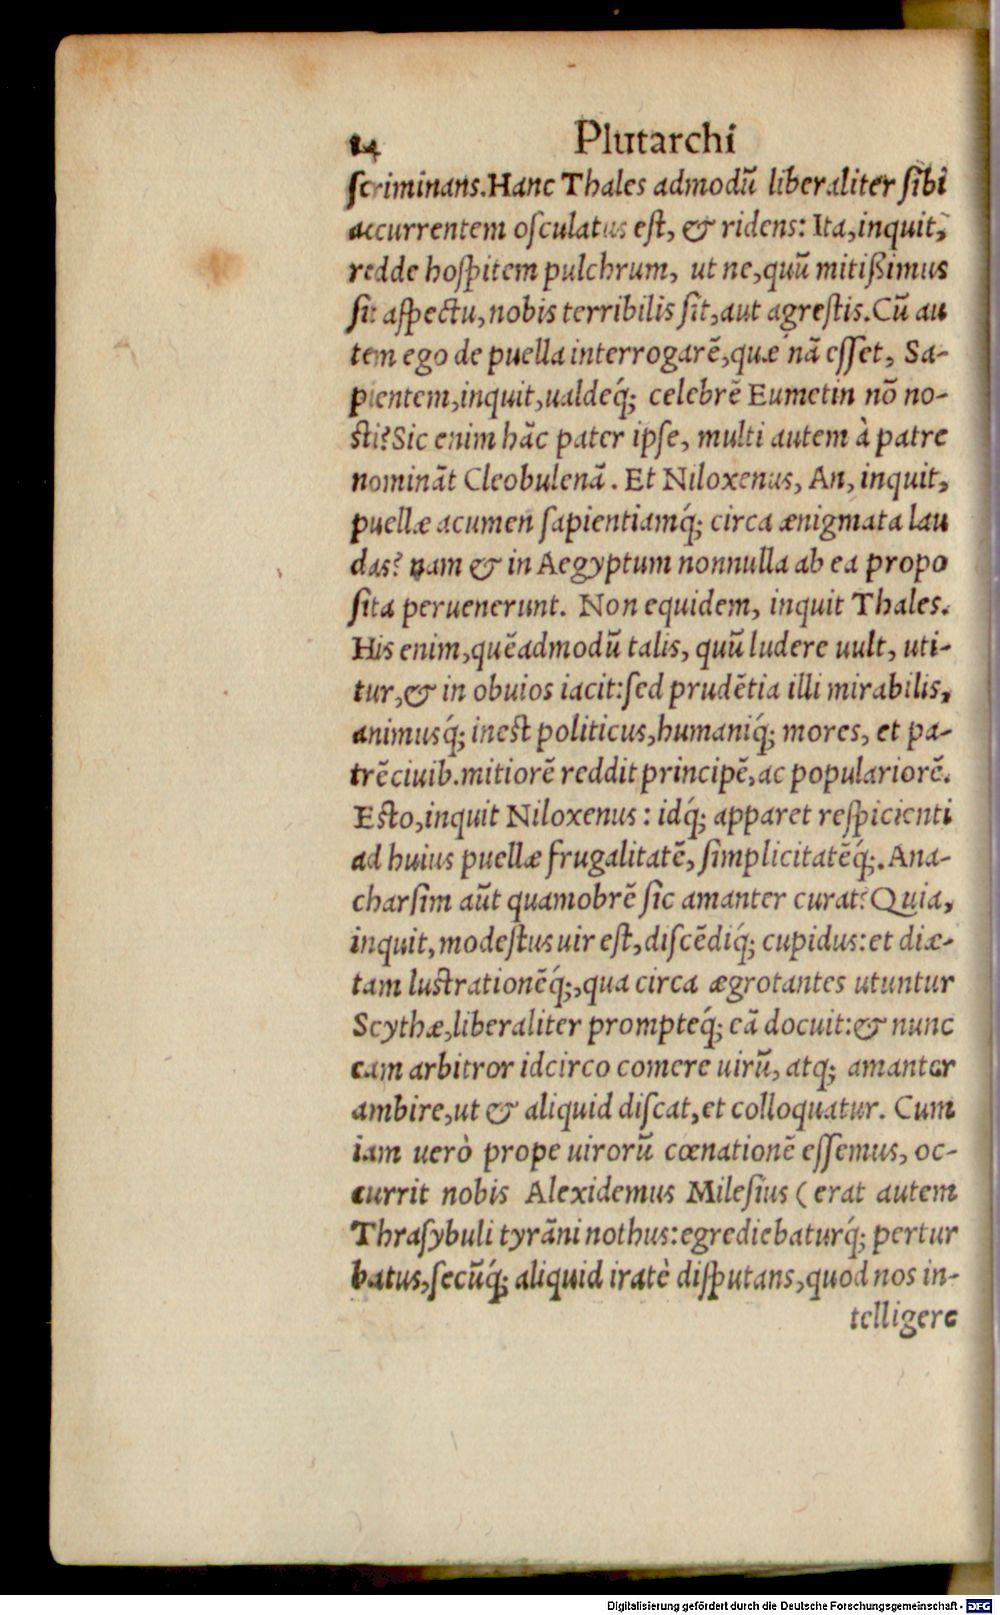 14 Plutarchi
scriminans. Hanc Thales admodũ liberaliter sibi
accurrentem osculatus est, & ridens: Ita, inquit,
redde hospitem pulchrum, ut ne, quũ mitißimus
sit aspectu, nobis terribilis sit, aut agrestis. Cũ au
tem ego de puella interrogarẽ, quæ nã esset, Sa-
pientem, inquit, ualdeq́; celebrẽ Eumetin nõ no-
sti? Sic enim hãc pater ipse, multi autem à patre
nominãt Cleobulenã. Et Niloxenus, An, inquit,
puellæ acumen sapientiamq́; circa ænigmata lau
das? nam & in Aegyptum nonnulla ab ea propo
sita peruenerunt. Non equidem, inquit Thales.
His enim, quẽadmodũ talis, quũ ludere uult, uti-
tur, & in obuios iacit: sed prudẽtia illi mirabilis,
animusq́; inest politicus, humaniq́; mores, et pa-
trẽ ciuib. mitiorẽ reddit principẽ, ac populariorẽ.
Esto, inquit Niloxenus: idq́; apparet respicienti
ad huius puellæ frugalitatẽ, simplicitatẽq́;. Ana-
charsim aũt quamobrẽ sic amanter curat? Quia,
inquit, modestus uir est, discẽdiq́; cupidus: et diæ-
tam lustrationẽq́;, qua circa ægrotantes utuntur
Scythæ, liberaliter prompteq́; eã docuit: & nunc
eam arbitror idcirco comere uirũ, atq; amanter
ambire, ut & aliquid discat, et colloquatur. Cum
iam uerò prope uirorũ cœnationẽ essemus, oc-
currit nobis Alexidemus Milesius (erat autem
Thrasybuli tyrãni nothus: egrediebaturq́; pertur
batus, secũq́; aliquid iratè disputans, quod nos in-
telligere
Digitalisierung gefördert durch die Deutsche Forschungsgemeinschaft - DFG